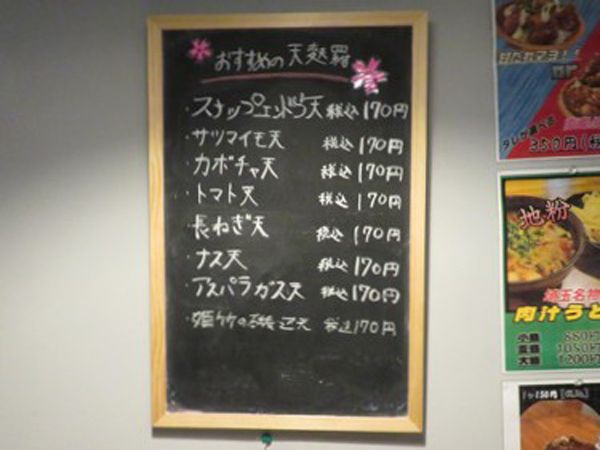 おすすめの天麩羅
・スナップエンドウ天 税込170円
・サツマイモ天 税込170円
・カボチャ天 税込170円
・トマト天 税込170円
・長ねぎ天 税込170円
・ナス天 税込170円
・アスパラガス天 税込170円
・姫竹の磯辺天 税込170円
甘だれマヨ!!
タレが選べる
350円(税
地粉
埼玉名物
肉汁うど
小盛 880円
並盛 1050円
大盛 1200円